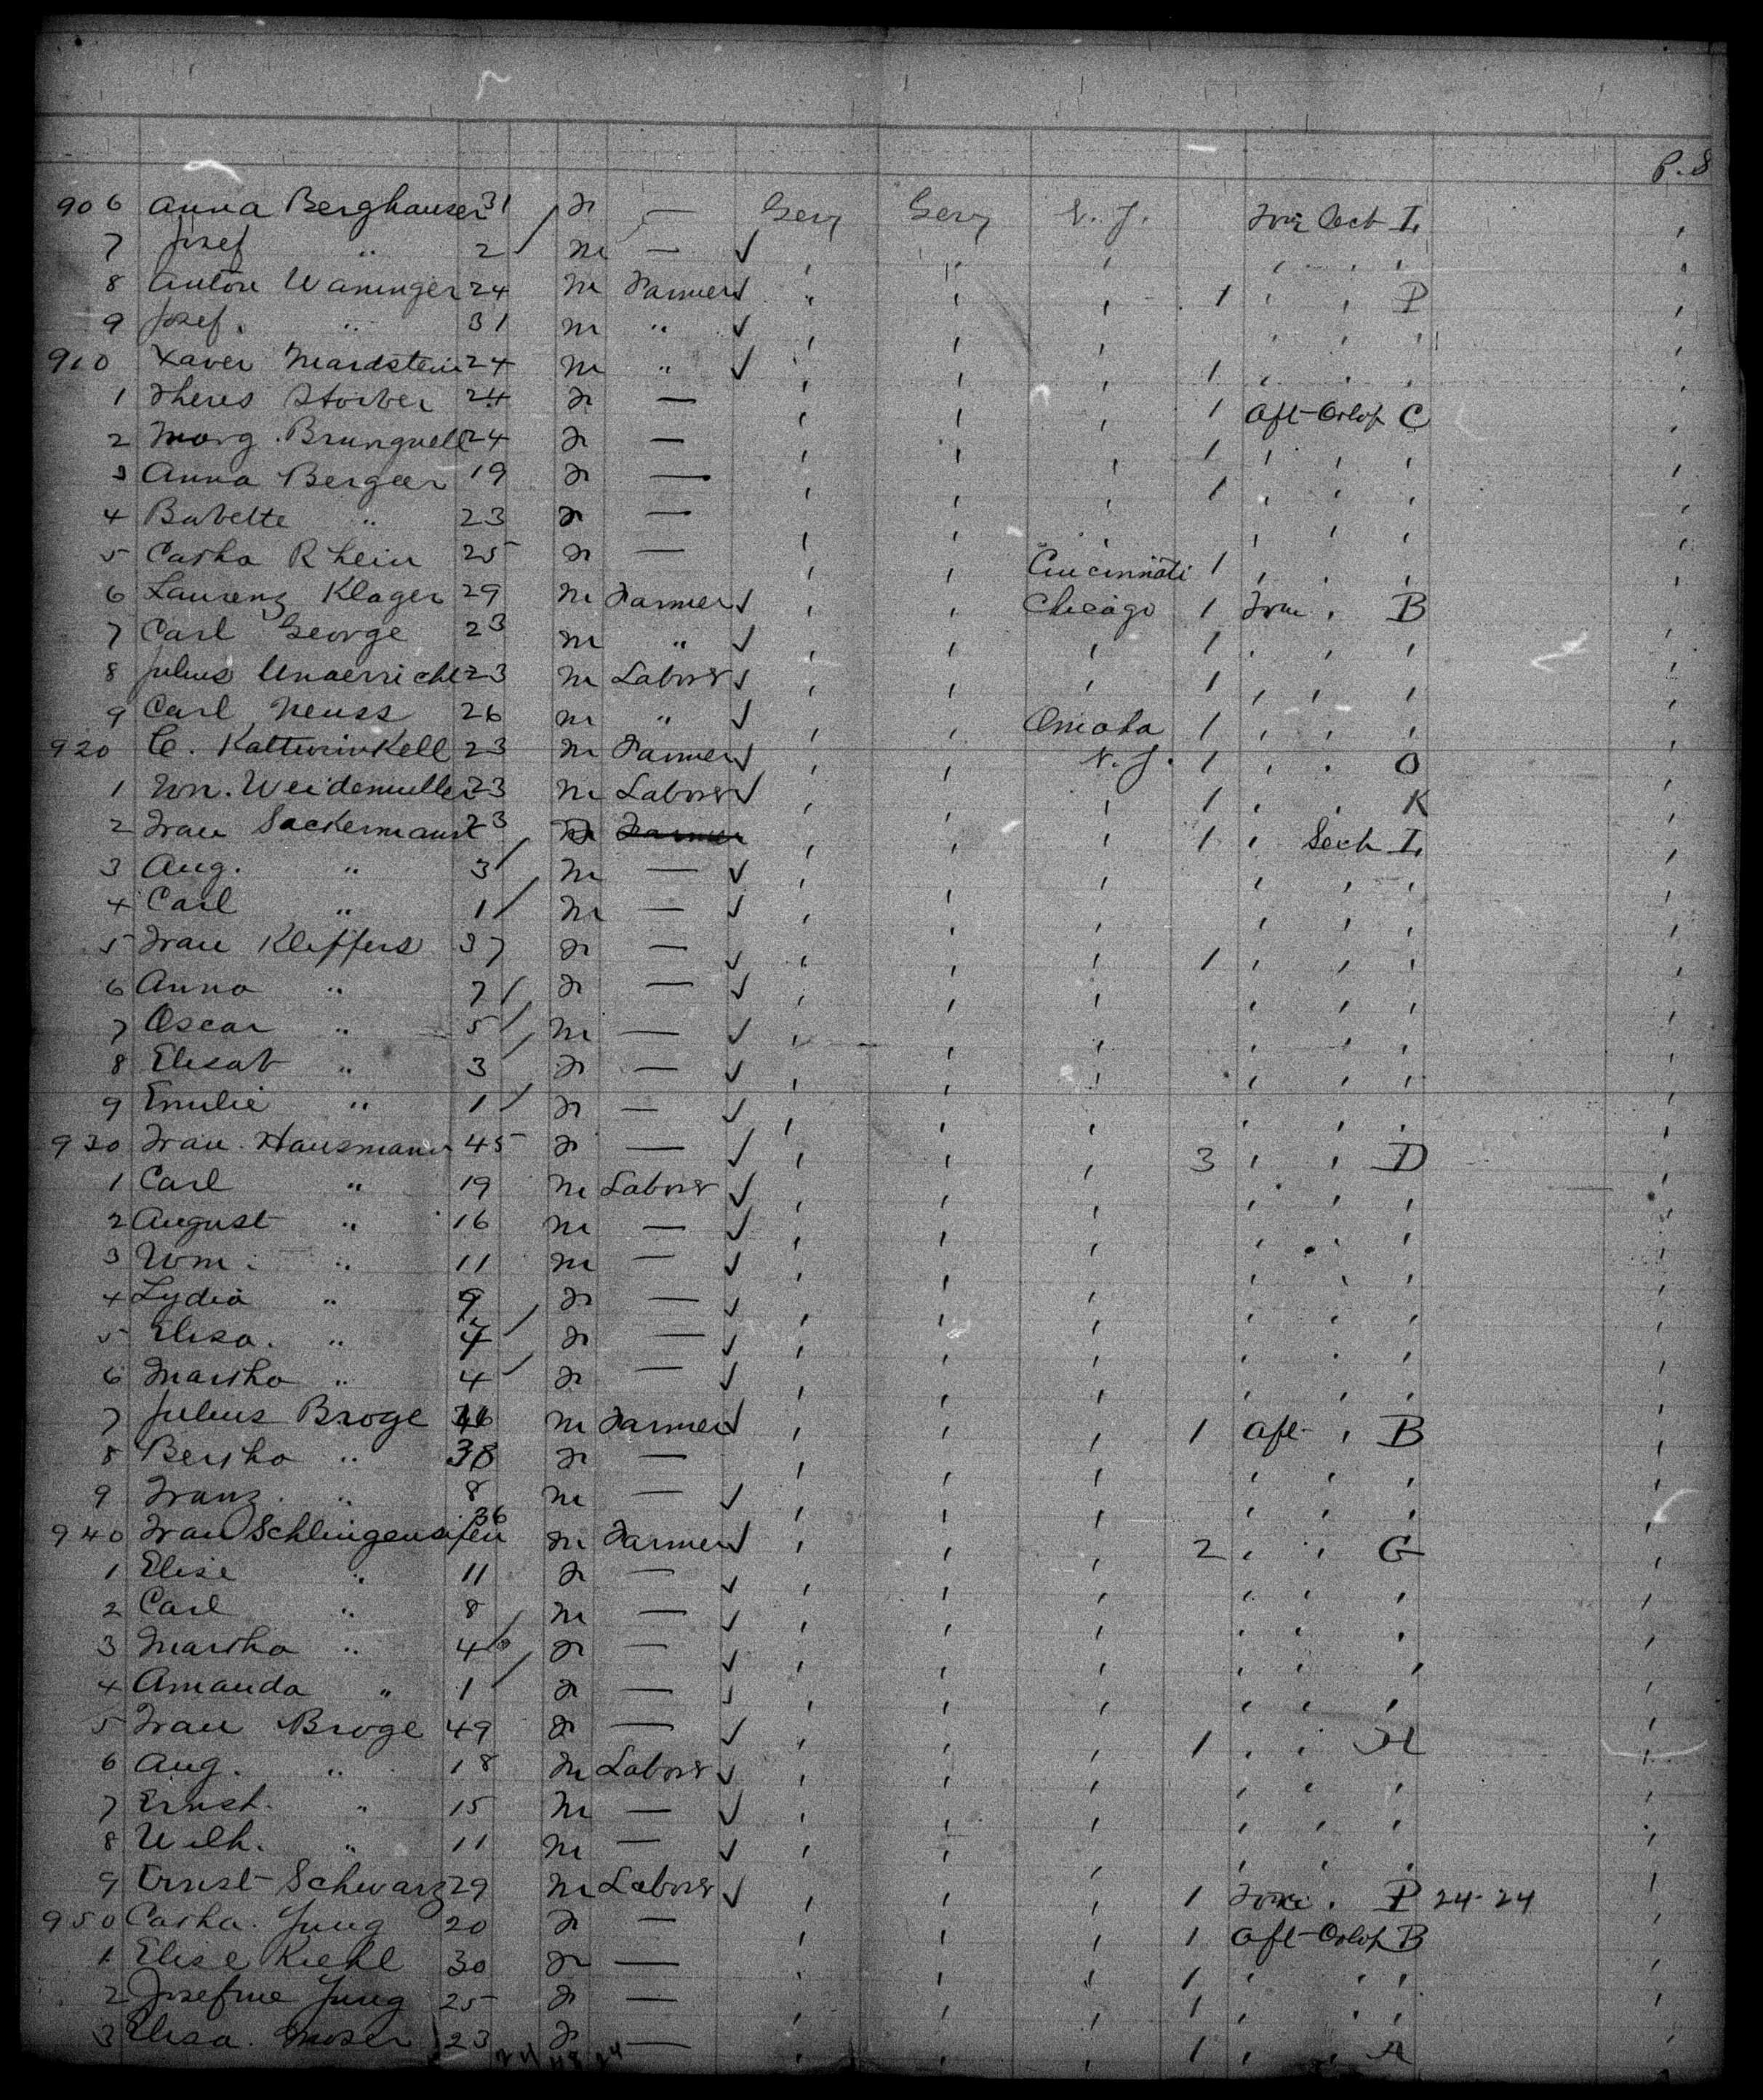 P. S
906 Anna Berghauser 31 F — Gery Gery N. J. Forw Sect I,
7 Josef " 2 M — ✓ , , , , , ,
8 Anton Waninger 24 M Farmer ✓ " , , 1 , , P ,
9 Josef. " 31 M " ✓ , , , , , , ,
910 Xaver Mardstein 24 M " ✓ , , , 1 , , , ,
1 Theres Storber 24 F — , , , 1 Aft Orlop C ,
2 Marg. Brungnell 24 F — , , , 1 , , , ,
3 Anna Berger 19 F — , , , 1 , , , ,
4 Babette " 23 F — , , , , , , ,
5 Catha Rhein 25 F — , , Cincinnati 1 , , , ,
6 Laurenz Klager 29 M Farmer ✓ , , Chicago 1 Forw , B ,
7 Carl George 23 M " ✓ , , , 1 , , , ,
8 Julius 23 M Laborer ✓ , , , 1 , , , ,
9 Carl Neuss 26 M " ✓ , , Omaha 1 , , , ,
920 C. Kattwinkell 23 M Farmer ✓ , , N. J. 1 , , O ,
1 Wm. Weidemuller 23 M Laborer ✓ , , , 1 , , K ,
2 Frau Sackermann 23 F Farmer , , , 1 , Sect I, ,
3 Aug. " 3 M — ✓ , , , , , , ,
4 Carl " 1 M — ✓ , , , , , , ,
5 Frau Kleffers 37 F — ✓ , , , 1 , , , ,
6 Anna " 7 F — ✓ , , , , , , ,
7 Oscar " 5 M — ✓ , , , , , , ,
8 Elisab " 3 F — ✓ , , , , , , ,
9 Emilie " 1 F — ✓ , , , , , , ,
930 Frau Hausmann 45 F — ✓ , , , 3 , , D ,
1 Carl " 19 M Laborer ✓ , , , , , , ,
2 August " 16 M — ✓ , , , , , , ,
3 Wm. " 11 M — ✓ , , , , , , ,
4 Lydia " 9 F — ✓ , , , , , , ,
5 Elisa. " F — ✓ , , , , , , ,
6 Martha " 4 F — ✓ , , , , , , ,
7 Julius Broge M Farmer ✓ , , , 1 Aft , B ,
8 Bertha " 38 F — , , , , , , ,
9 Franz. " 8 M — ✓ , , , , , , ,
940 Frau Schlingensifen 36 M Farmer ✓ , , , 2 , , G ,
1 Elise " 11 F — ✓ , , , , , , ,
2 Carl " 8 M — ✓ , , , , , , ,
3 Martha " 4 F — ✓ , , , , , , ,
4 Amanda " 1 F — ✓ , , , , , , ,
5 Frau Broge 49 F — ✓ , , , 1 , , H ,
6 Aug. " 18 M Laborer ✓ , , , , , , ,
7 Ernst. " 15 M — ✓ , , , , , , ,
8 Wilh. " 11 M — ✓ , , , , , , ,
9 Ernst Schwarz 29 M Laborer ✓ , , , 1 Forw , P 24-24 ,
950 Catha. Jung 20 F — , , , 1 Aft Orlop B ,
1 Elise Kiehl 30 F — , , , 1 , , , ,
2 Josefine Jung 25 F — , , , 1 , , , ,
3 Elisa. Moser 23 F — , , , 1 , , A ,